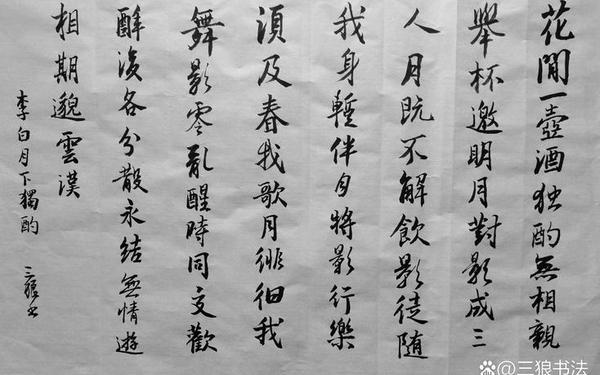 花間一壺酒独酌無相親
舉杯邀明月對影成三
人月既不解飲影徒随
我身暫伴月將影行樂
須及春我歌月徘徊我
舞影零亂醒時同交歡
醉後各分散永結無情遊
相期邈雲漢
李白月下獨酌 三狼書
@三狼书法